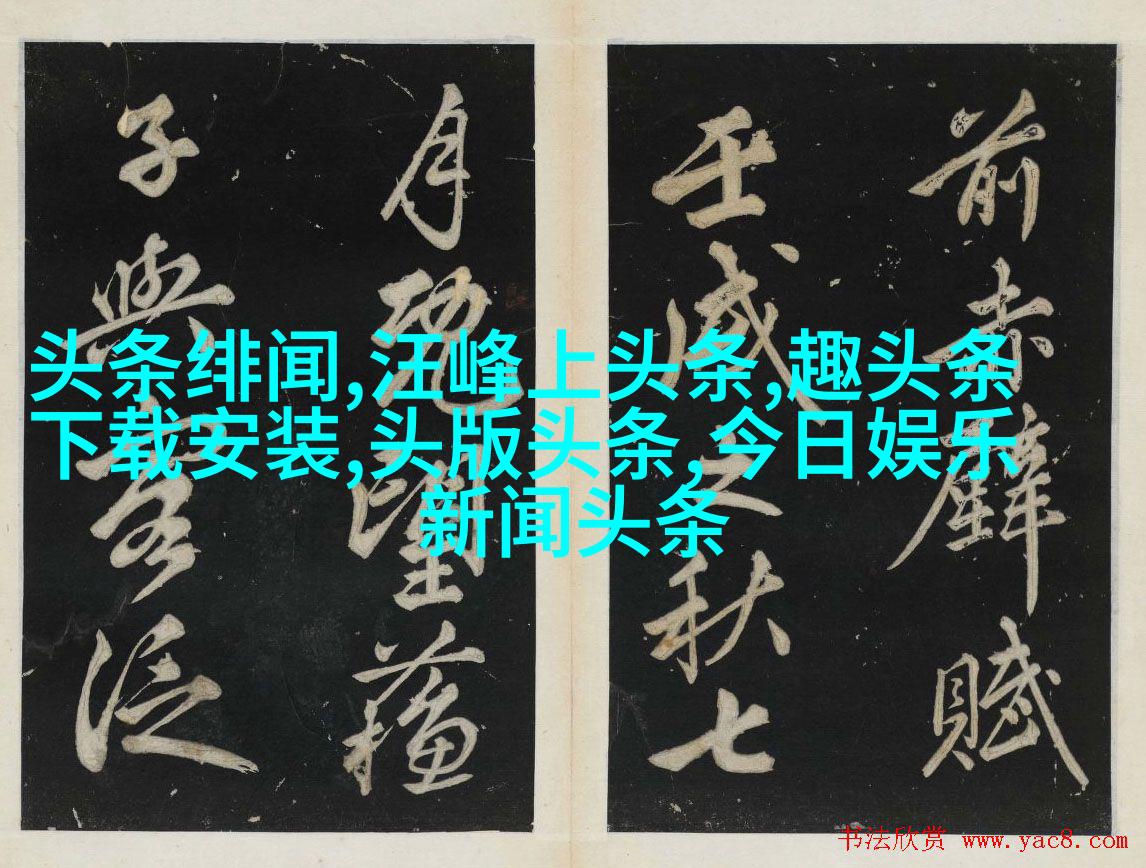 前赤壁賦
壬戌之秋七
月既望蘓
子與客泛
头条绯闻,汪峰上头条,趣头条
下载安装,头版头条,今日娱乐
新闻头条
书法欣赏 www.yac8.com